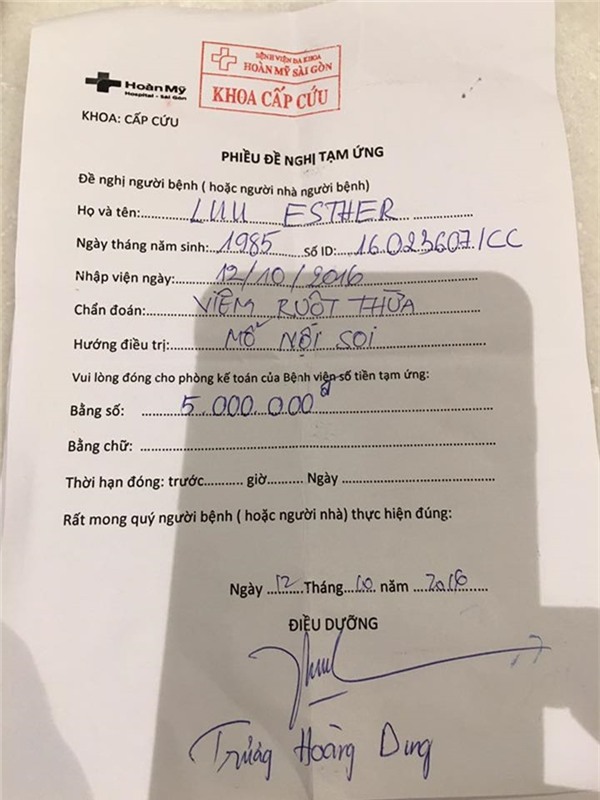 BỆNH VIỆN ĐA KHOA
HOÀN MỸ SÀI GÒN
KHOA CẤP CỨU
Hoàn Mỹ
Hospital - Sài Gòn
KHOA: CẤP CỨU
PHIẾU ĐỀ NGHỊ TẠM ỨNG
Đề nghị người bệnh ( hoặc người nhà người bệnh)
Họ và tên: LƯU ESTHER
Ngày tháng năm sinh: 1985 Số ID: 16023607/CC
Nhập viện ngày: 12/10/2016
Chẩn đoán: VIÊM RUỘT THỪA
Hướng điều trị: MỔ NỘI SOI
Vui lòng đóng cho phòng kế toán của Bệnh viện số tiền tạm ứng:
Bằng số: 5.000.000đ
Bằng chữ:
Thời hạn đóng: trước......... giờ.......... Ngày
Rất mong quý người bệnh ( hoặc người nhà) thực hiện đúng:
Ngày 12 Tháng 10 năm 2016
ĐIỀU DƯỠNG
Hoàng Dung